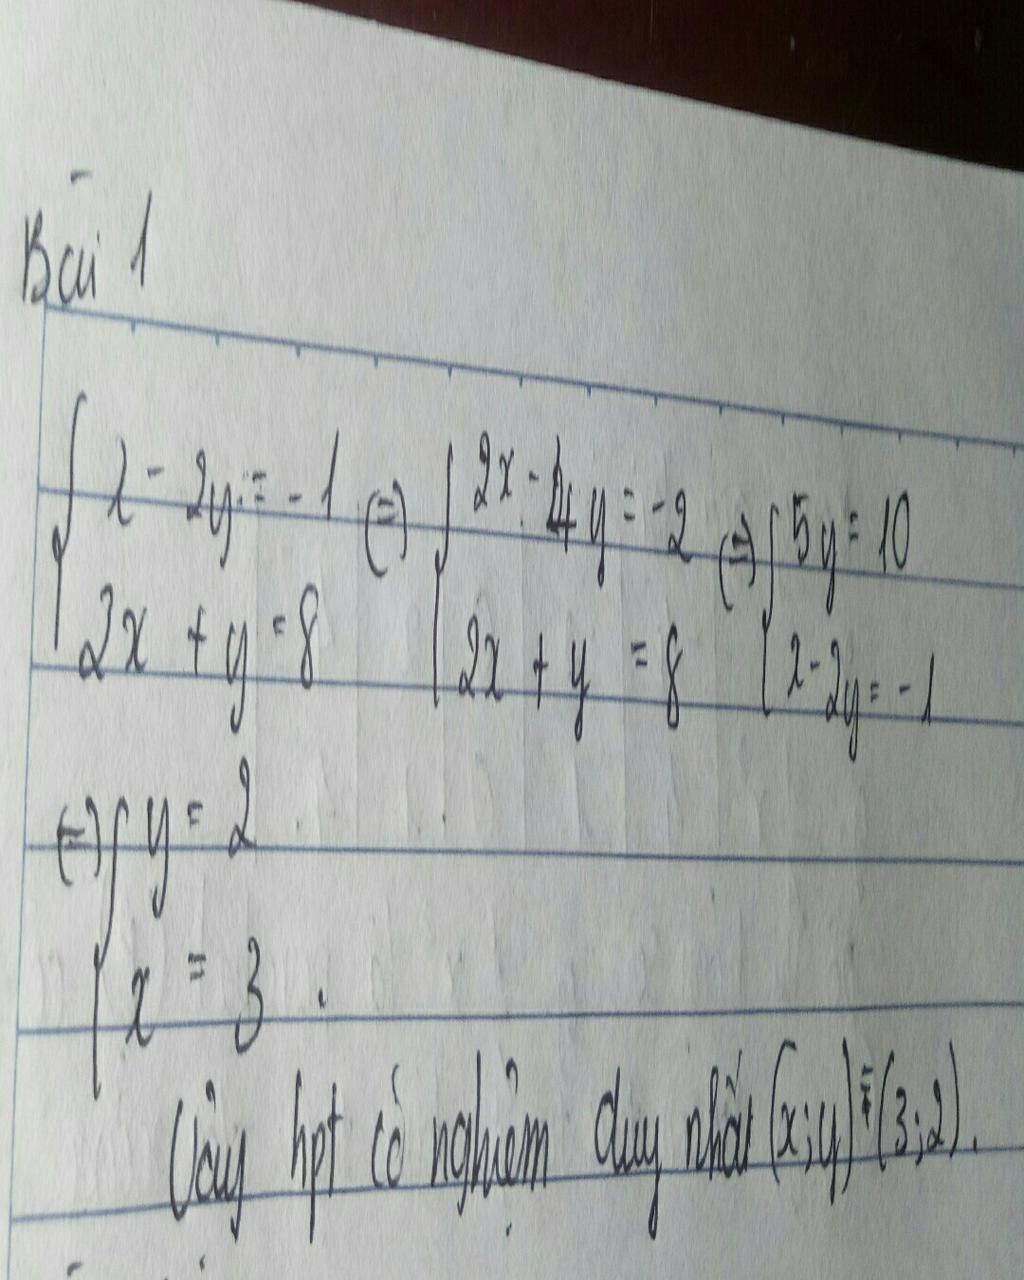 Bài 1
{ x - 2y = -1 (=) { 2x - 4y = -2 (=) { 5y = 10
2x + y = 8 2x + y = 8 x - 2y = -1
(=) { y = 2
x = 3 .
Vậy hpt có nghiệm duy nhất (x;y) = (3;2).